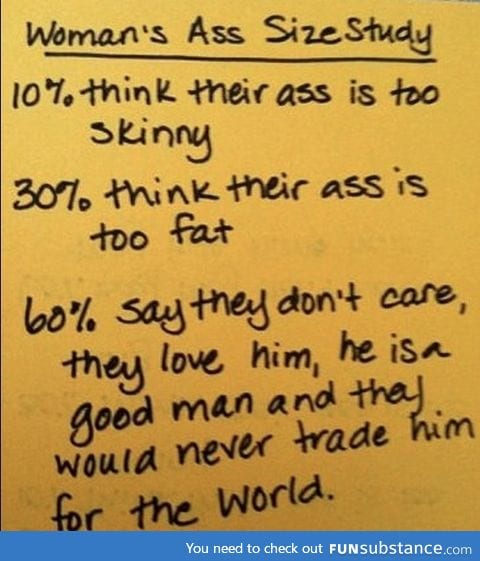 Woman's Ass Size Study
10% think their ass is too
skinny
30% think their ass is
too fat
60% say they don't care,
they love him, he is a
good man and they
would never trade him
for the world.
You need to check out FUNsubstance.com